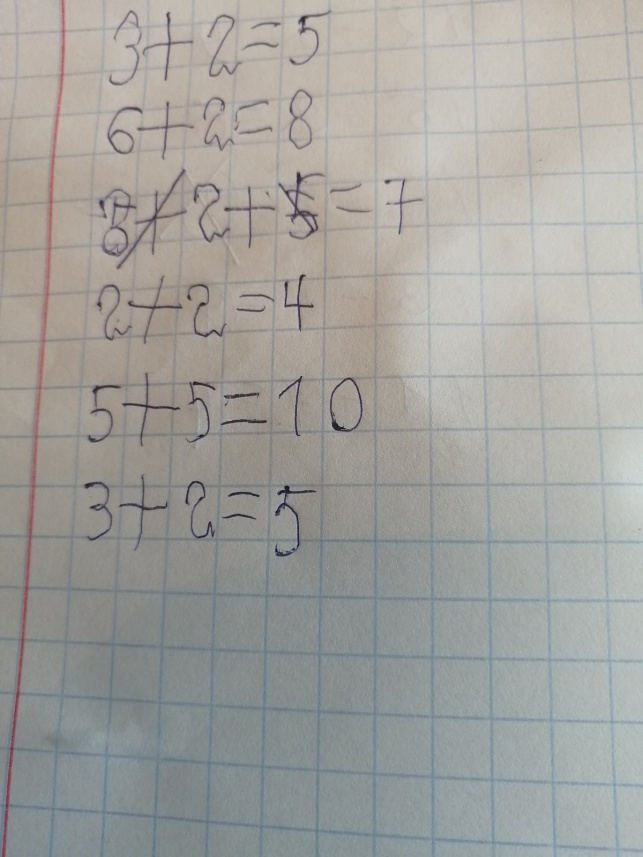 3+2=5
6+2=8
2+5=7
2+2=4
5+5=10
3+2=5